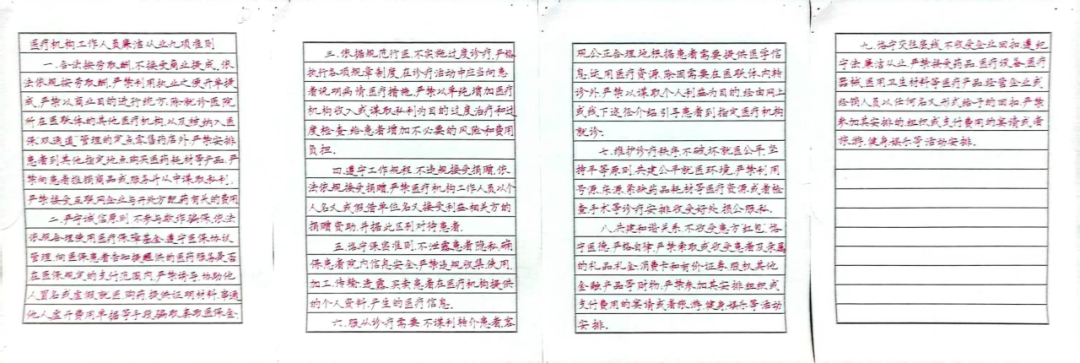 医疗机构工作人员廉洁从业九项准则
一、合法按劳取酬,不接受商业提成。依
法依规按劳取酬。严禁利用执业之便开单提
成;严禁以商业目的进行统方;除就诊医院
所在医联体的其他医疗机构,以及被纳入医
保"双通道"管理的定点零售药店外,严禁安排
患者到其他指定地点购买医药耗材等产品;严
禁向患者推销商品或服务并从中谋取私利;
严禁接受互联网企业与开处方配药有关的费用
二、严守诚信原则,不参与欺诈骗保。依法
依规合理使用医疗保障基金,遵守医保协议
管理,向医保患者告知提供的医药服务是否
在医保规定的支付范围内。严禁诱导、协助他
人冒名或虚假就医、购药、提供证明材料、串通
他人虚开费用单据等手段骗取、套取医保金
三、依据规范行医,不实施过度诊疗。严格
执行各项规章制度,在诊疗活动中应当向患
者说明病情、医疗措施。严禁以单纯增加医疗
机构收入或谋取私利为目的过度治疗和过
度检查,给患者增加不必要的风险和费用
负担。
四、遵守工作规程,不违规接受捐赠。依
法依规接受捐赠。严禁医疗机构工作人员以个
人名义,或假借单位名义接受利益相关方的
捐赠资助,并据此区别对待患者。
五、恪守保密准则,不泄露患者隐私。确
保患者院内信息安全。严禁违规收集、使用、
加工、传输、透露、买卖患者在医疗机构提供
的个人资料、产生的医疗信息。
六、服从诊疗需要,不谋利转介患者。客
观公正合理地根据患者需要提供医学信
息、运用医疗资源。除因需要在医联体内转
诊外,严禁以谋取个人利益为目的,经由网上
或线下途径介绍、引导患者到指定医疗机构
就诊。
七、维护诊疗秩序,不破坏就医公平。坚
持平等原则,共建公平就医环境。严禁利用
号源、床源、紧缺药品耗材等医疗资源或者检
查、手术等诊疗安排收受好处、损公肥私。
八、共建和谐关系,不收受患方红包。恪守
医德、严格自律。严禁索取或收受患者及亲属
的礼品、礼金、消费卡和有价证券、股权、其他
金融产品等财物;严禁参加其安排、组织或
支付费用的宴请或者旅游、健身、娱乐等活动
安排。
九、恪守交往底线,不收受企业回扣。遵纪
守法、廉洁从业。严禁接受药品、医疗设备、医疗
器械、医用卫生材料等医疗产品经营企业或
经销人员以任何名义、形式给予的回扣;严禁
参加其安排、组织或支付费用的宴请或者
旅游、健身、娱乐等活动安排。